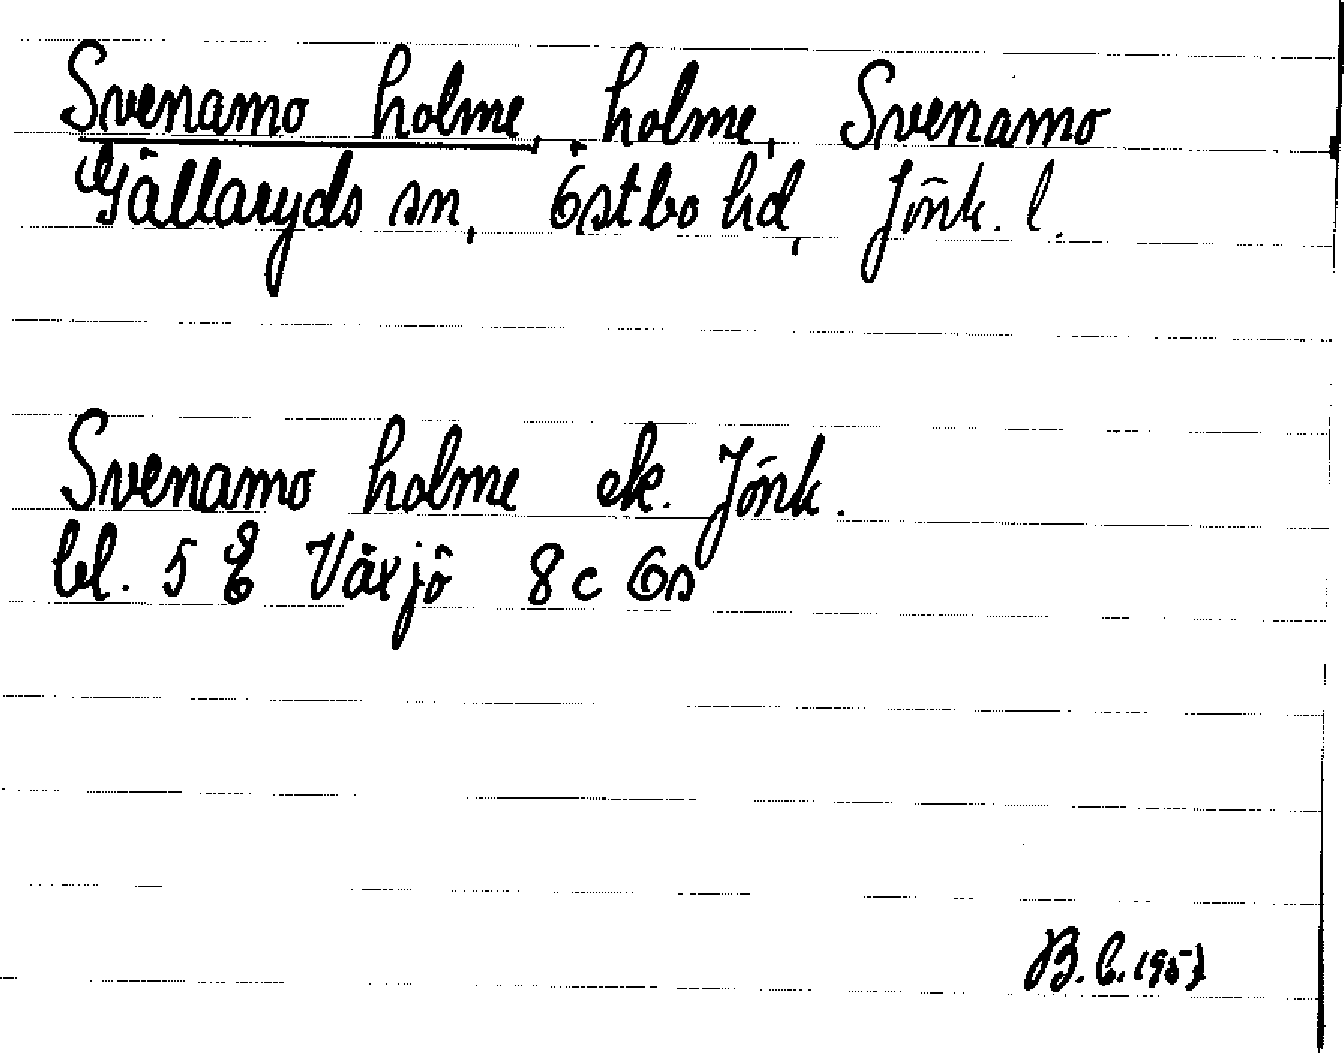 Svenamo holme, holme, Svenamo
Gällaryds sn, Östbo hd, Jönk. l.
Svenamo holme ek. Jönk.
bl. 5 E Växjö 8 c Ös
B. C.